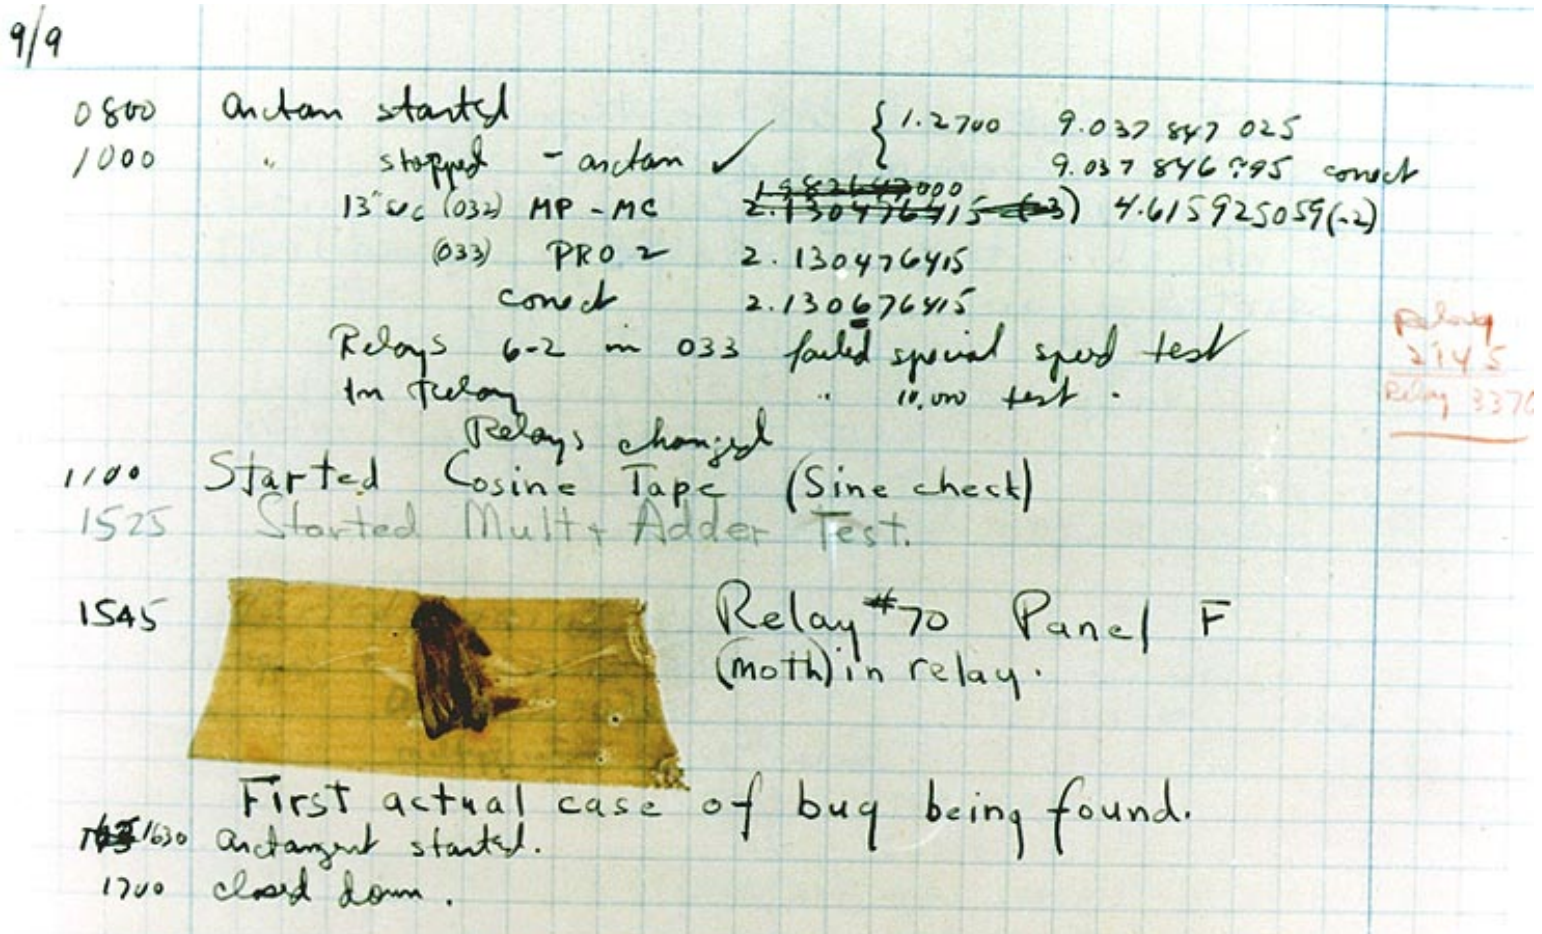 9/9
0800 arctan started { 1.2700 9.037 847 025
1000 " stopped - arctan ✓ 9.037 846 995 correct
000
13"sec (032) MP - MC 2.130476415 (-3) 4.615925059(-2)
(033) PRO 2 2.130476415
correct 2.130676415
Relays 6-2 in 033 failed special speed test
In relay " 10,000 test .
Relays changed
Relay
2145
Relay 3370
1100 Started Cosine Tape (Sine check)
1525 Started Mult + Adder Test.
1545 Relay #70 Panel F
(moth) in relay.
First actual case of bug being found.
1630 arctangent started.
1700 closed down .